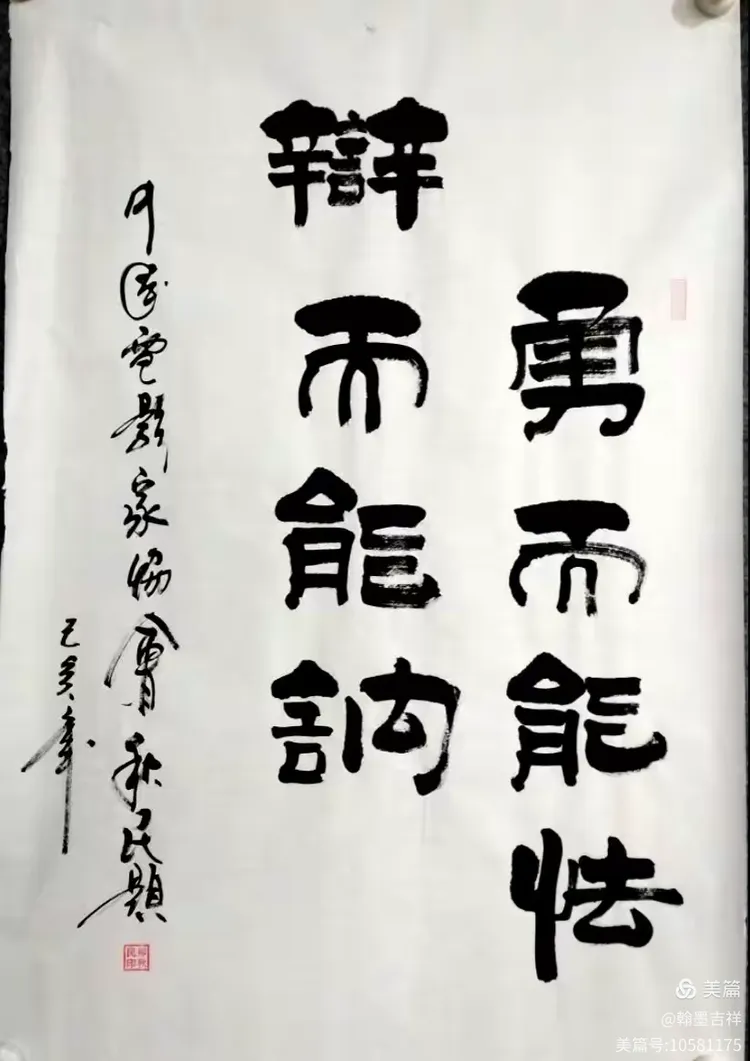 勇而能怯
辩而能訥
中国電影家協會秋民題
己亥年
美篇
@翰墨吉祥
美篇号:10581175